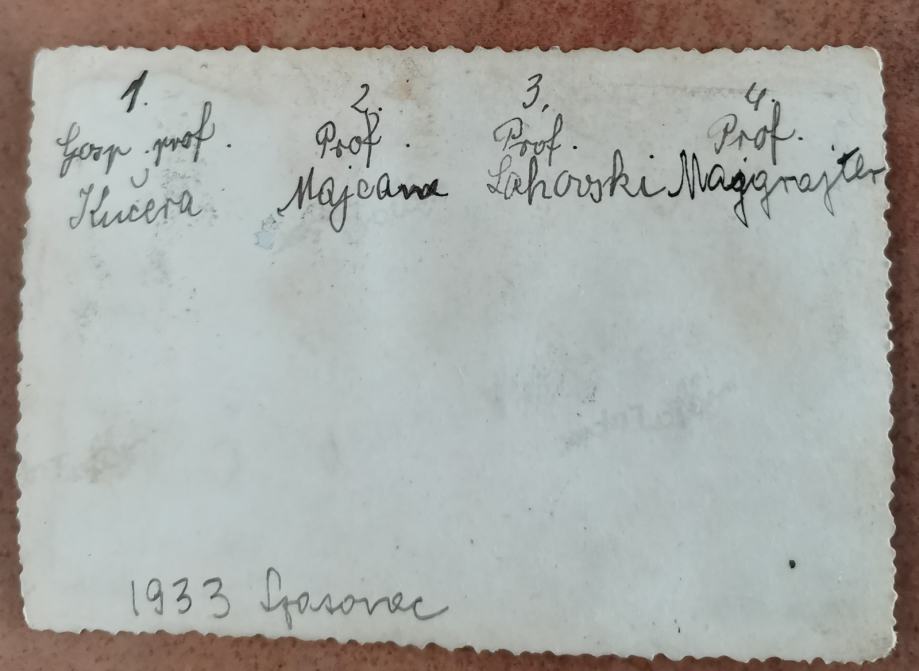 1. 2. 3. 4.
Gosp. prof. Prof. Prof. Prof.
Kučera Majcan Lahovski Maggrajter
1933 Spasovac